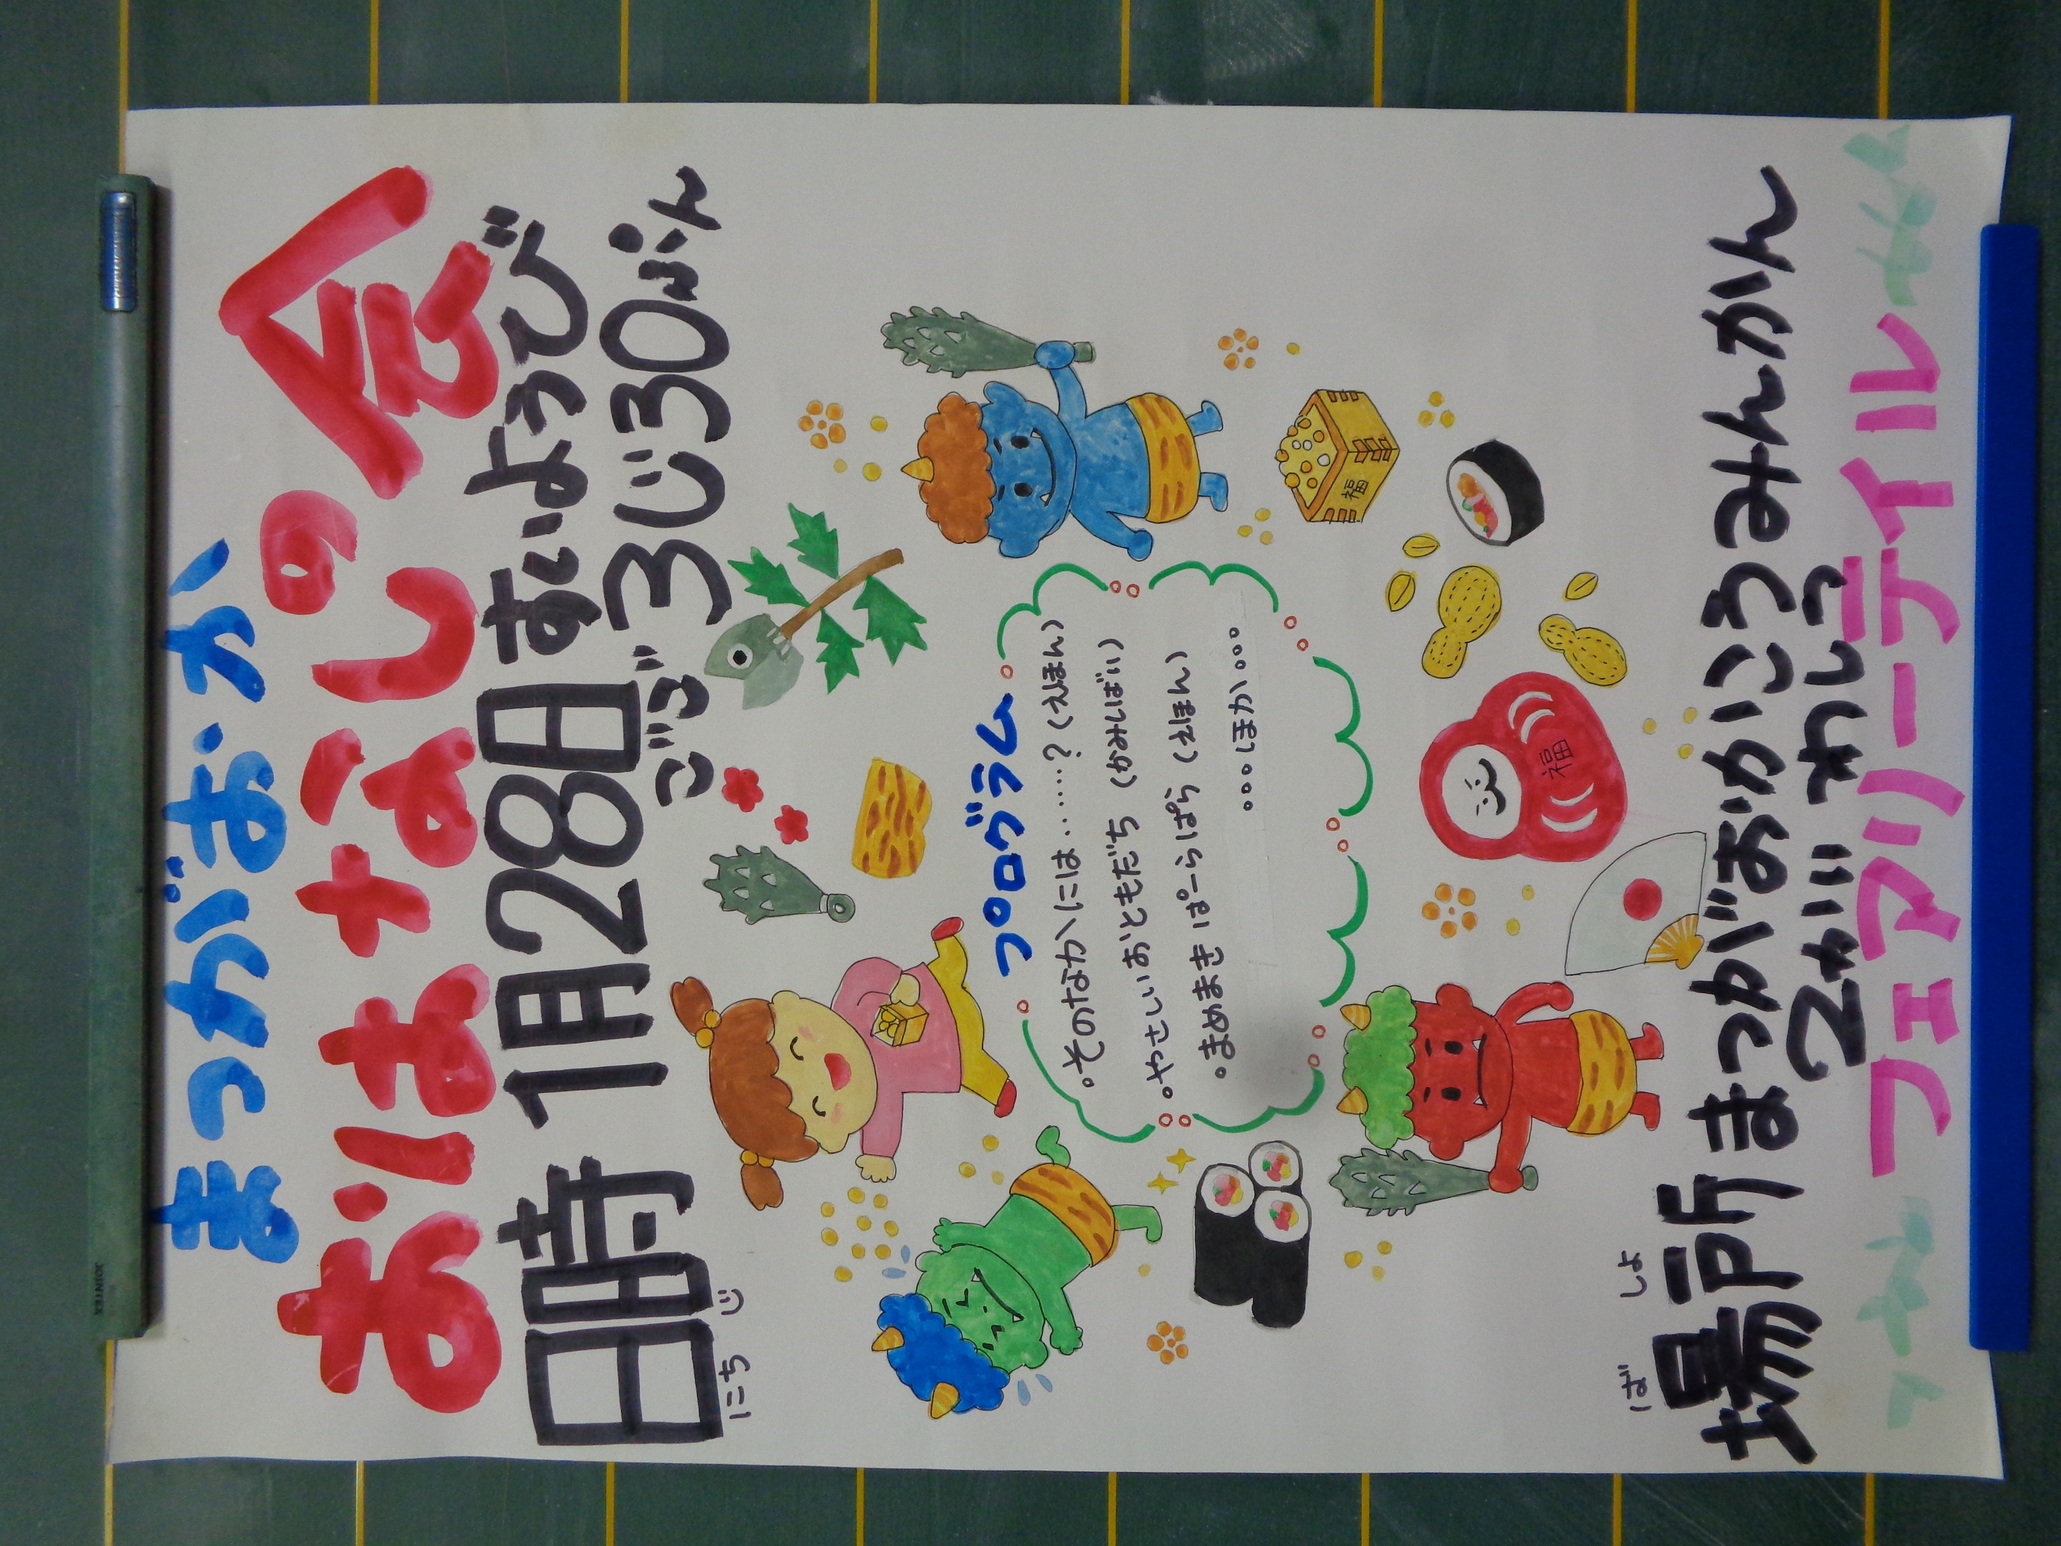 まつがおか
おはなしの会
日時 1月28日 すいようび
にち じ
ごご 3じ30ぷん
プログラム
。そのなかには………？（えほん）
。やさしいおともだち（かみしばい）
。まめまき ぱーらぱら（えほん）
。。。ほか。。。
ば しょ
場所 まつがおかこうみんかん
2かい わしつ
フェアリーテイル
福
福